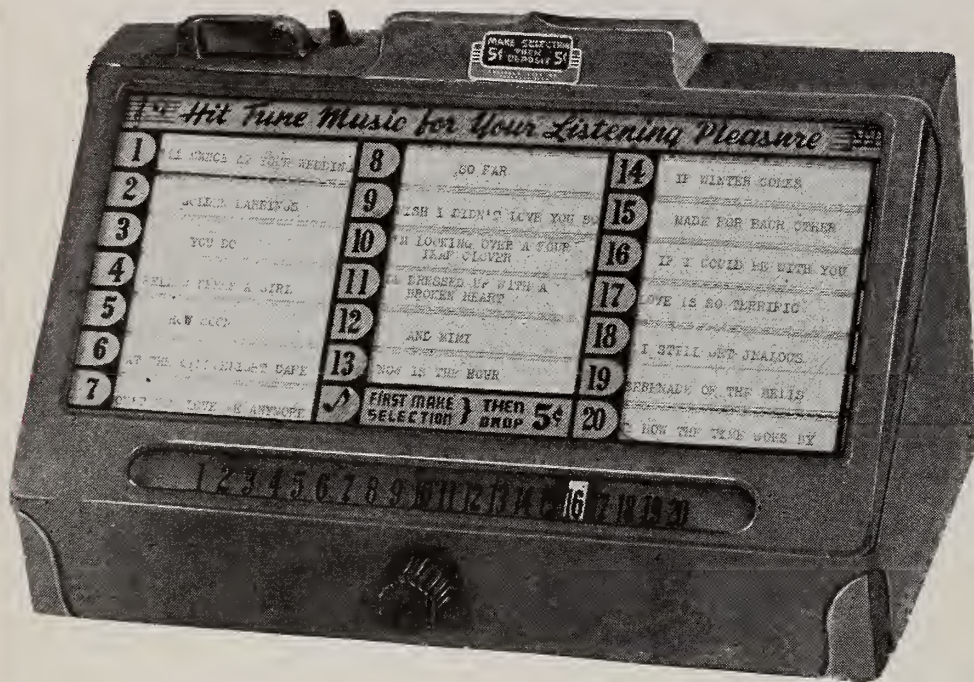 MAKE SELECTION
5¢ THEN DEPOSIT 5¢
Hit Tune Music for Your Listening Pleasure
1 DANCE AT YOUR WEDDING
2 EARRINGS
3 YOU DO
4 A GIRL
5 HOW SOON
6 AT THE CAFE
7 LOVE ME ANYMORE
8 SO FAR
9 WISH I DIDN'T LOVE YOU SO
10 I'M LOOKING OVER A FOUR
LEAF CLOVER
11 DRESSED UP WITH A
BROKEN HEART
12 AND MIMI
13 NOW IS THE HOUR
FIRST MAKE SELECTION } THEN DROP 5¢
14 IF WINTER COMES
15 MADE FOR EACH OTHER
16 IF I COULD BE WITH YOU
17 LOVE IS SO TERRIFIC
18 I STILL GET JEALOUS
19 SERENADE OF THE BELLS
20 HOW THE TIME GOES BY
1 2 3 4 5 6 7 8 9 10 11 12 13 14 15 16 17 18 19 20